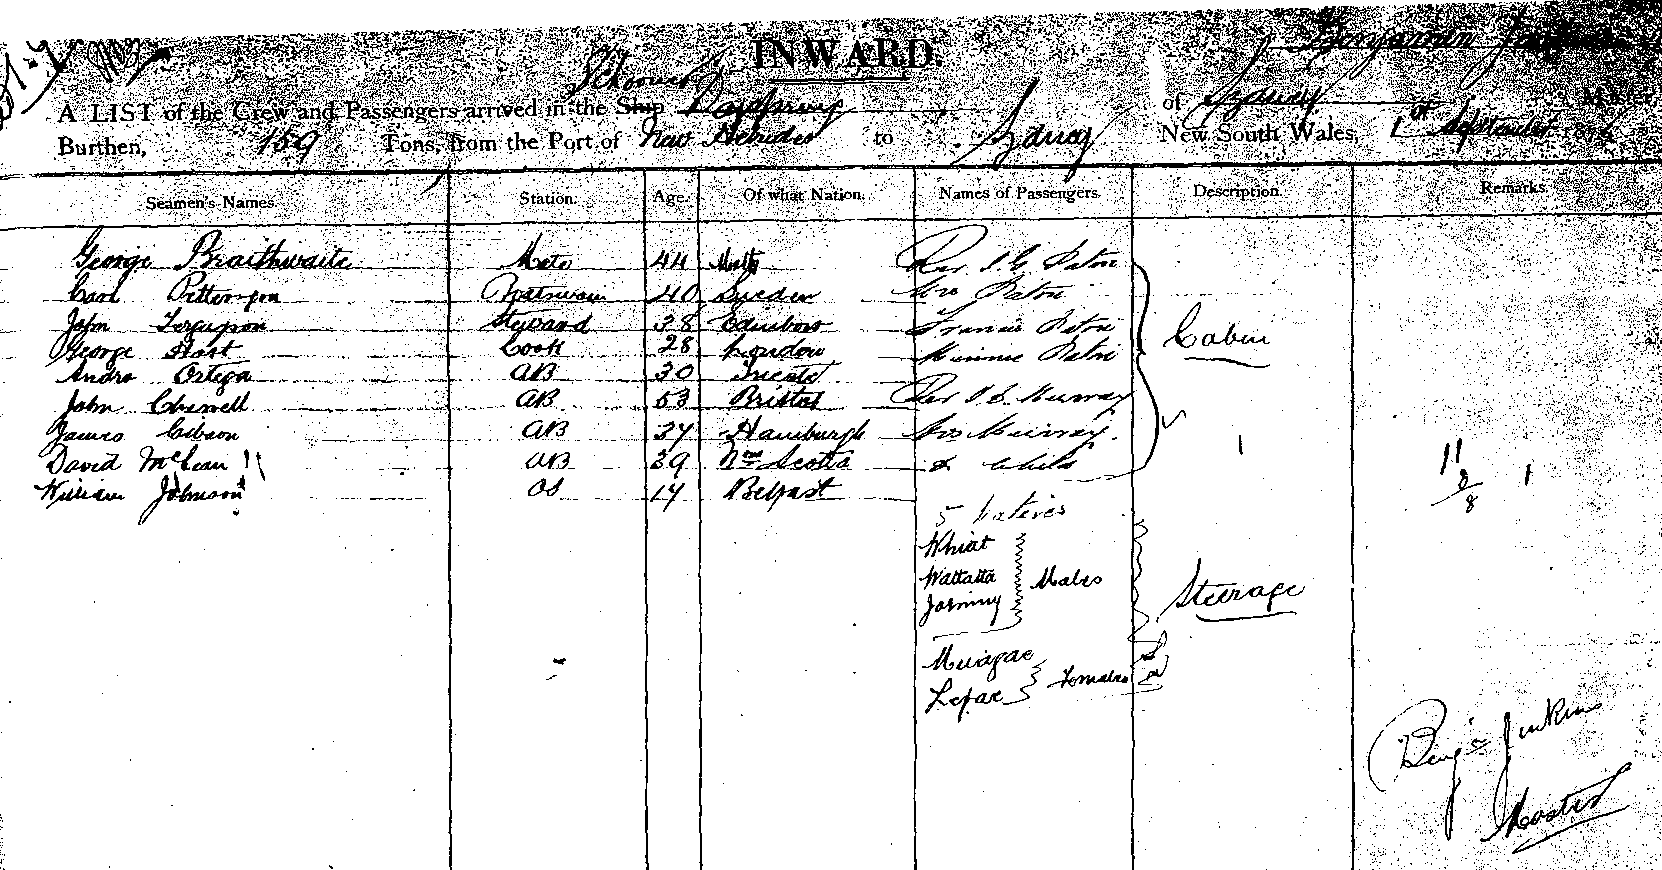 INWARD.
Schooner
Benjamin Jenkins
A LIST of the Crew and Passengers arrived in the Ship Dayspring of Sydney Master,
Burthen, 159 Tons, from the Port of New Hebrides to Sydney New South Wales, 1st September 187
Seamen's Names. Station. Age. Of what Nation. Names of Passengers. Description. Remarks.
George Braithwaite Mate 44 Rev J. G. Paton
Carl Petterson Boatswain 40 Sweden Mrs Paton
John Ferguson Steward 38 Edinboro Francis Paton
George Hast Cook 28 London Minnie Paton Cabin
Andro Ortega AB 30 Trieste
John Chiswell AB 53 Bristol Rev Murray
James Gibson AB 37 Hamburgh Mrs Murray.
David McLean AB 39 Nva Scotia & Child 1 11 1
William Johnson OS 17 Belfast 3/8
5 Natives
Whiat
Wattatta Males
Jahminy Steerage
Muiagae
Lepae Females
Benjn Jenkins
Master